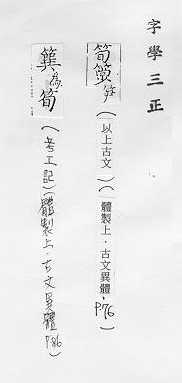 字學三正
筍簨（以上古文）（體製上．古文異體，P76）
簨為筍（考工記）（體製上．古文異體P86）